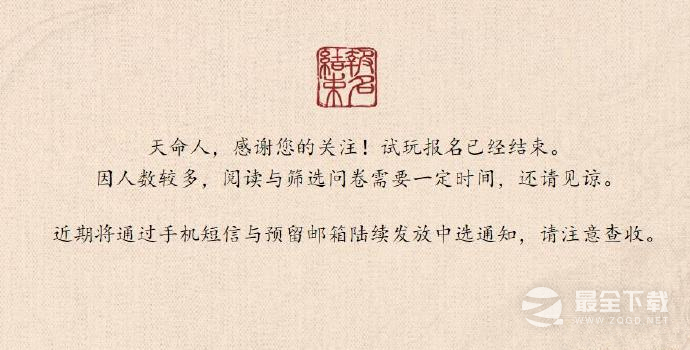 報名結束
天命人，感谢您的关注！试玩报名已经结束。
因人数较多，阅读与筛选问卷需要一定时间，还请见谅。
近期将通过手机短信与预留邮箱陆续发放中选通知，请注意查收。
最全下载
WWW.ZQQD.NET